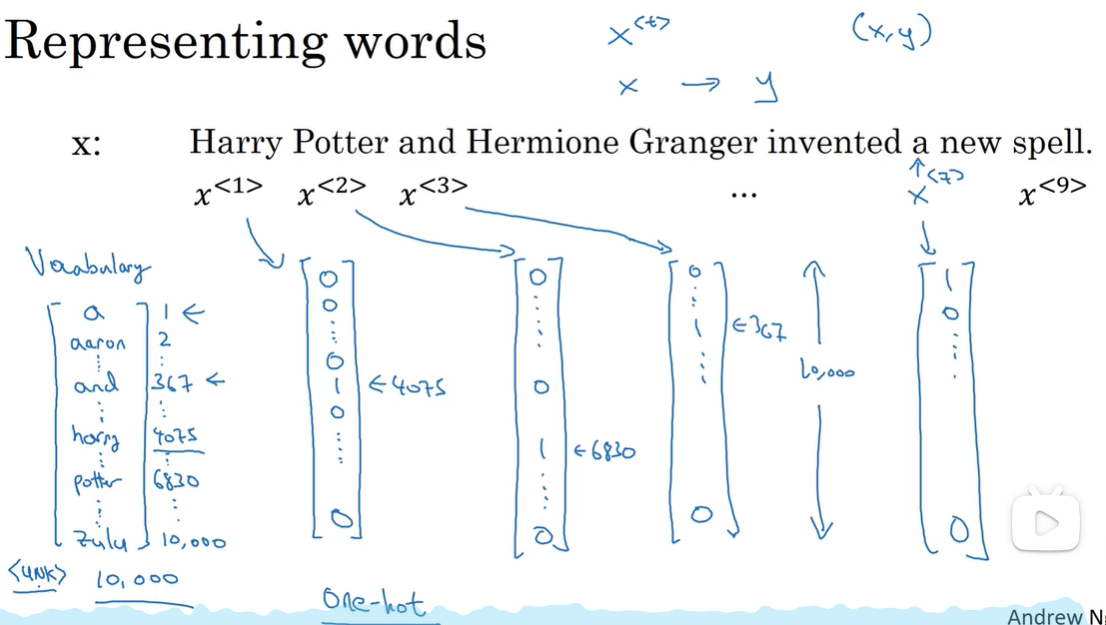 Representing words
x<t>
(x,y)
x → y
x: Harry Potter and Hermione Granger invented a new spell.
x<1> x<2> x<3> ... x<7> x<9>
Vocabulary
a 1 ←
aaron 2
and 367 ←
harry 4075
potter 6830
zulu 10,000
<UNK> 10,000
0
0
0
1 ←4075
0
0
0
0
1 ←6830
0
0
1 ←367
0
10,000
1
0
0
One-hot
Andrew N